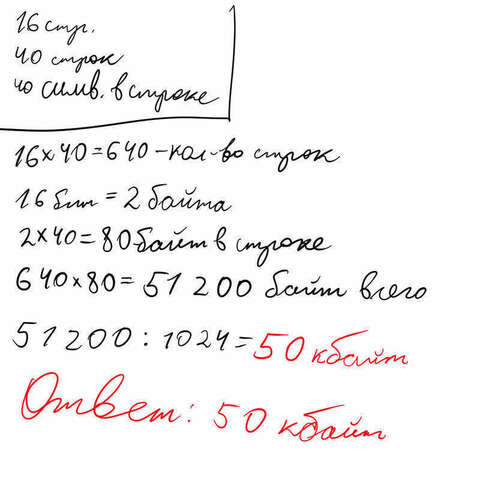 16 стр.
40 строк
40 симв. в строке
16×40=640-кол-во строк
16 бит = 2 байта
2×40=80байт в строке
640×80= 51 200 байт всего
51200:1024=50 кбайт
Ответ: 50 кбайт